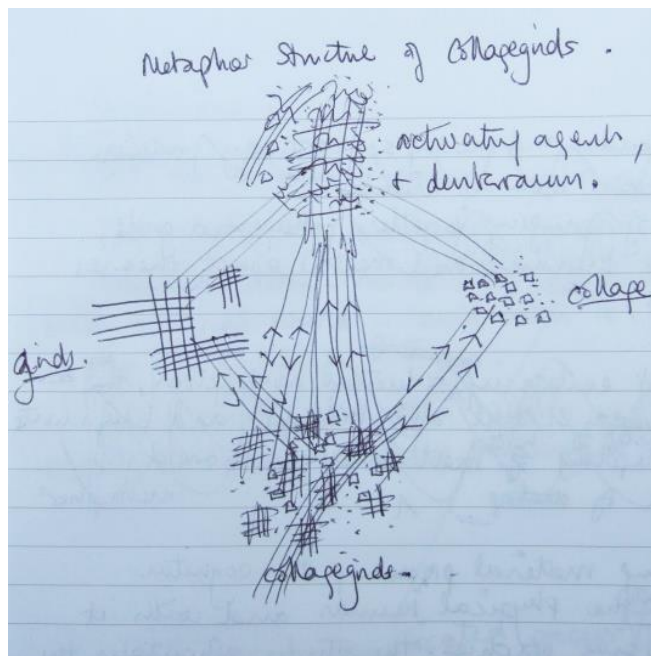 Metaphor Structure of Collagegrids.
activating agents,
+ denkraum.
collage
grids.
collagegrids.